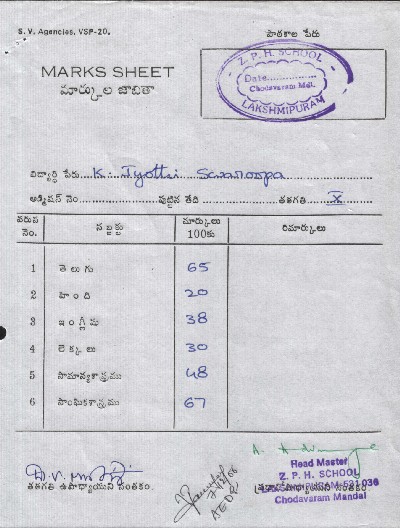 S. V. Agencies, VSP-20.
పాఠశాల పేరు
MARKS SHEET
మార్కుల జాబితా
Z. P. H. SCHOOL
Date................
Chodavaram Mdl.
LAKSHMIPURAM
విద్యార్థి పేరు.... K. Jyothi Swaroopa
అడ్మిషన్ నెం.................పుట్టిన తేది.................తరగతి.... X
వరుస నెం. సబ్జక్టు మార్కులు 100కు రిమార్కులు
1 తెలుగు 65
2 హింది 20
3 ఇంగ్లీషు 38
4 లెక్కలు 30
5 సామాన్యశాస్త్రము 48
6 సాంఘికశాస్త్రము 67
Head Master
Z. P. H. SCHOOL
LAKSHMIPURAM-531036
Chodavaram Mandal
తరగతి ఉపాధ్యాయుని సంతకం.